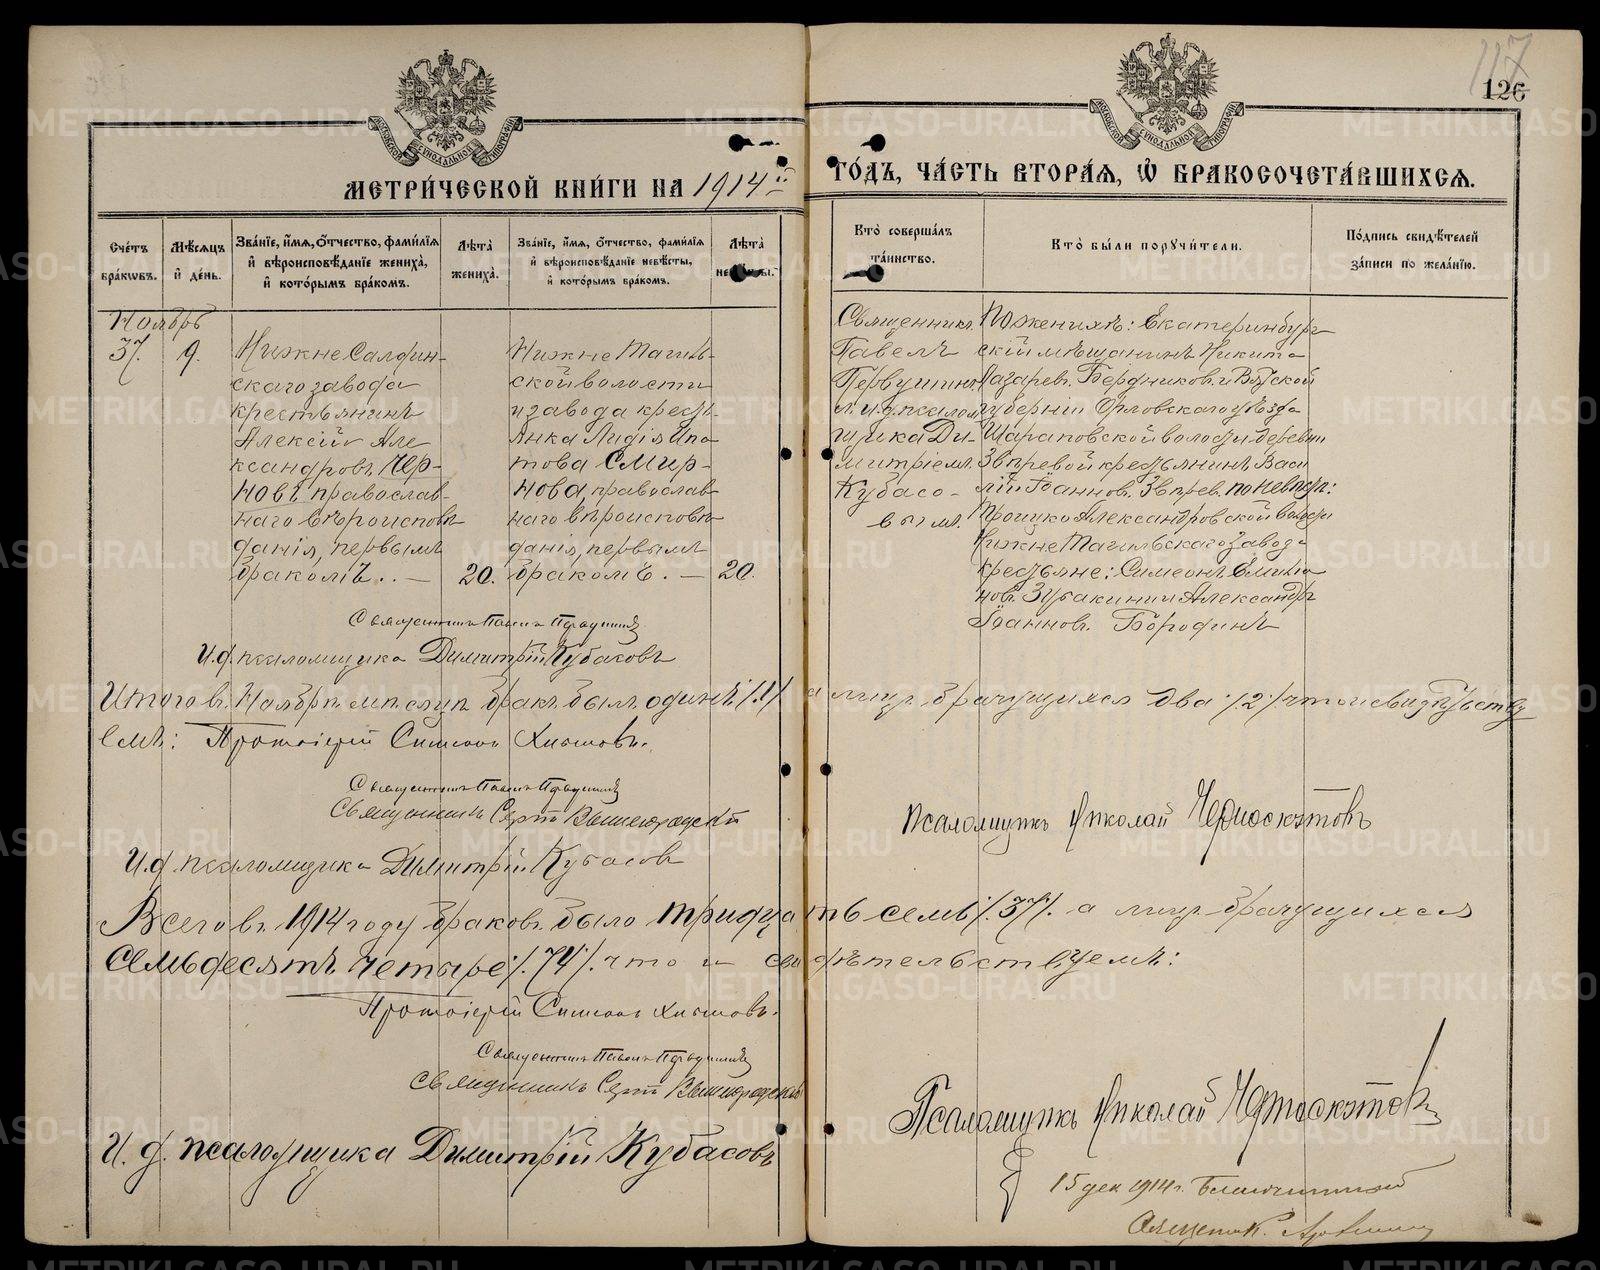 117
126
МОСКОВСКОЙ СѴНОДАЛЬНОЙ ТИПОГРАФІИ
МОСКОВСКОЙ СѴНОДАЛЬНОЙ ТИПОГРАФІИ
МЕТРИ́ЧЕСКОЙ КНИ́ГИ НА 1914й ГО́ДЪ, ЧА́СТЬ ВТОРА́Я, Ѽ БРАКОСОЧЕТА́ВШИХСЯ.
Сче́тъ бра́кωвъ.
Мѣ́сяцъ и҆ де́нь.
Зва́нїе, и҆́мя, ѻ҆́тчество, фами́лїя и҆ вѣроисповѣ́данїе жениха̀, и҆ кото́рымъ бра́комъ.
Лѣ́та жениха̀.
Зва́нїе, и҆́мя, ѻ҆́тчество, фами́лїя и҆ вѣроисповѣ́данїе невѣ́сты, и҆ кото́рымъ бра́комъ.
Лѣ́та невѣ́сты.
Кто̀ соверша́лъ та́инство.
Кто̀ бы́ли порꙋчи́тели.
По́дпись свидѣ́телей за́писи по жела́нїю.
Ноябрь
37. 9.
Нижне Салдин-
скаго завода
крестьянинъ
Алексій Але
ксандровъ Чер-
новъ, православ-
наго вѣроисповѣ
данія, первымъ
бракомъ . . — 20.
Нижне Тагиль-
ской волости
и завода кресть-
янка Лидія Ипа
това Смир-
нова, православ
наго вѣроисповѣ
данія, первымъ
бракомъ . — 20.
Священникъ
Павелъ
Первушинъ
съ и. д. псалом
щика Ди-
митріемъ
Кубасо-
вымъ.
По женихѣ: Екатеринбург
скій мѣщанинъ Никита
Лазаревъ Бердниковъ и Вятской
губерніи Орловскаго уѣзда
Шараповской волости деревни
крестьянинъ Васи
лій Іоанновъ по невѣстѣ:
Троицко Александровской волости
Нижне Тагильскаго завода
крестьяне: Симеонъ
новъ Зубакинъ и Александръ
Іоанновъ Бородинъ
Священникъ Павелъ Первушинъ
И. д. псаломщика Димитрій Кубасовъ
Итого въ Ноябрѣ мѣсяцѣ бракъ былъ одинъ /1/ а лицъ брачущихся два /2/ что и свидѣтельству
емъ: Протоіерей Симеонъ
Священникъ Павелъ Первушинъ
Священникъ Сергій Вышегородскій
Псаломщикъ Николай Черноскутовъ
И. д. псаломщика Димитрій Кубасовъ
Всего въ 1914 году браковъ было тридцать семь /37/. а лицъ брачущихся
семьдесятъ четыре /74/. что и свидѣтельствуемъ:
Протоіерей Симеонъ
Священникъ Павелъ Первушинъ
Священникъ Сергій Вышегородскій
Псаломщикъ Николай Черноскутовъ
И. д. псаломщика Димитрій Кубасовъ
15 дек 1914 г. Благочинный
METRIKI.GASO-URAL.RU